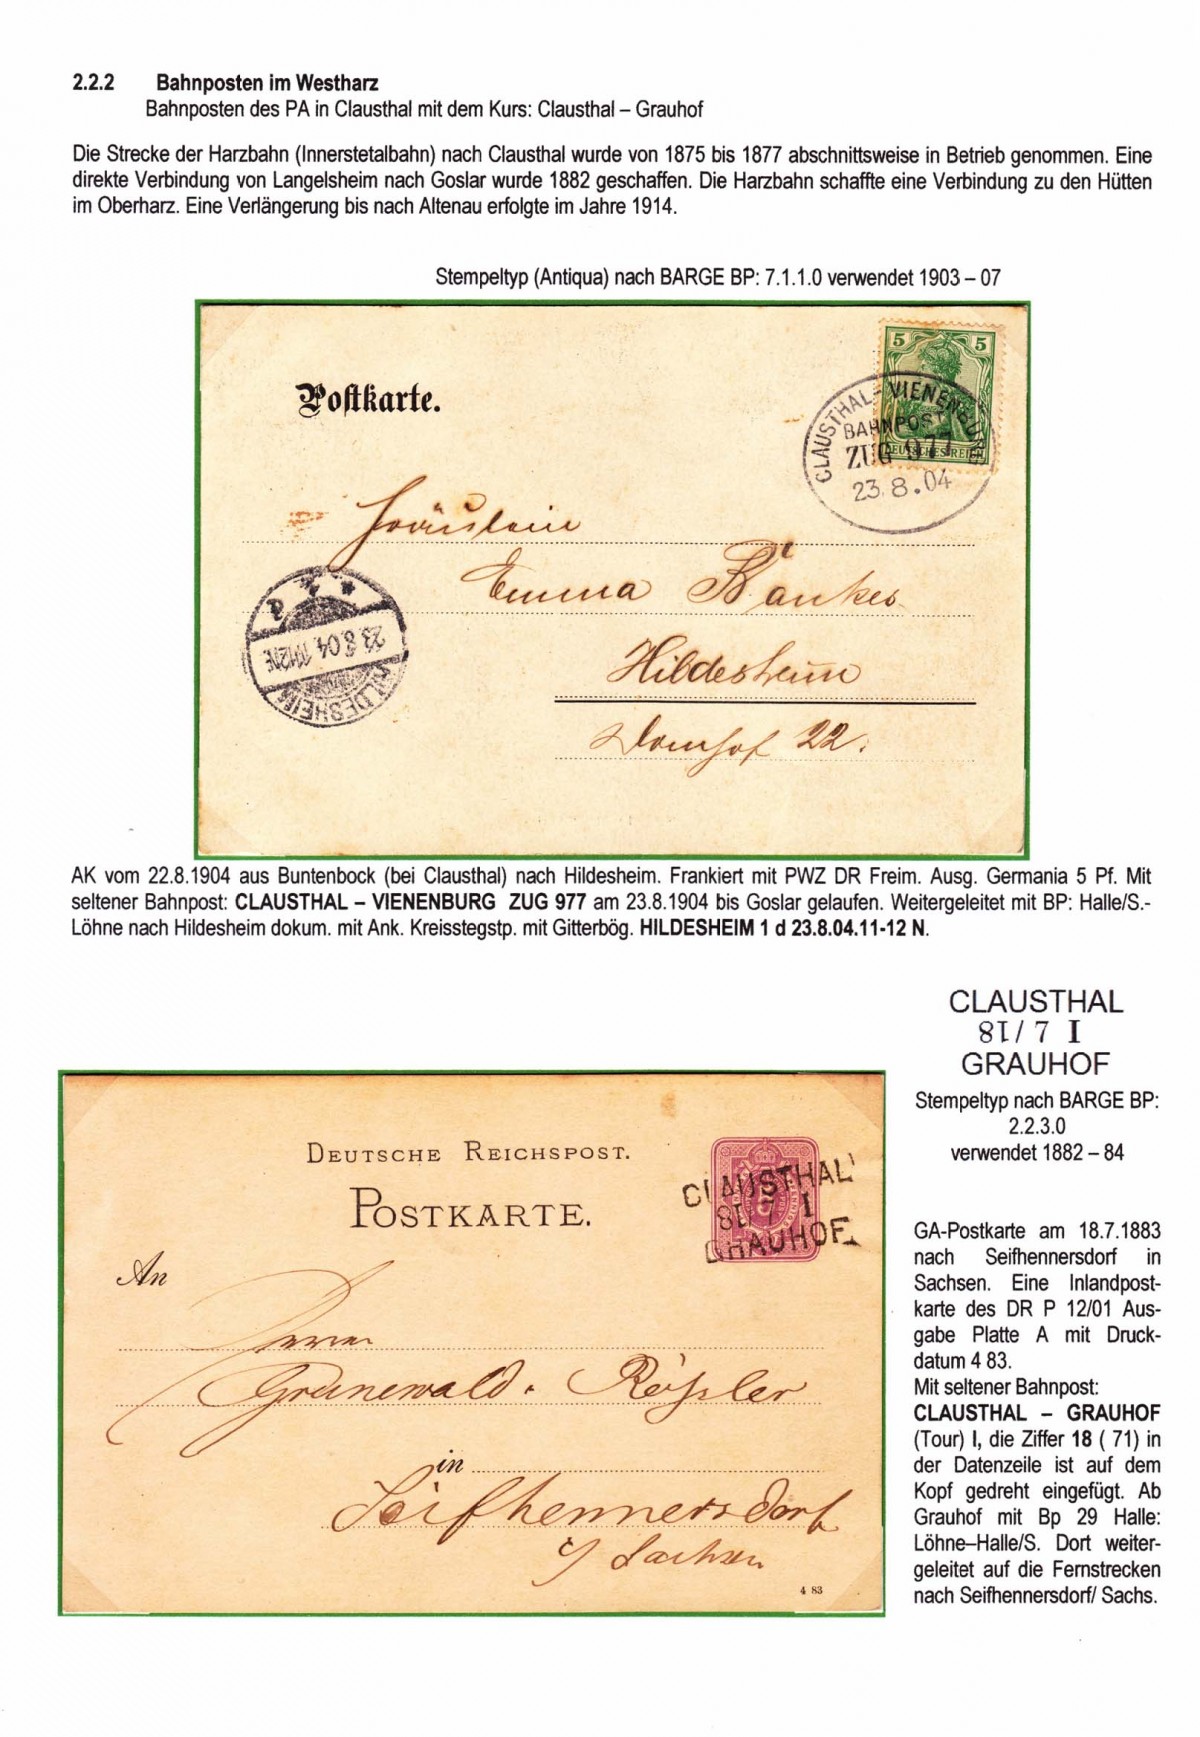 2.2.2 Bahnposten im Westharz
Bahnposten des PA in Clausthal mit dem Kurs: Clausthal – Grauhof
Die Strecke der Harzbahn (Innerstetalbahn) nach Clausthal wurde von 1875 bis 1877 abschnittsweise in Betrieb genommen. Eine
direkte Verbindung von Langelsheim nach Goslar wurde 1882 geschaffen. Die Harzbahn schaffte eine Verbindung zu den Hütten
im Oberharz. Eine Verlängerung bis nach Altenau erfolgte im Jahre 1914.
Stempeltyp (Antiqua) nach BARGE BP: 7.1.1.0 verwendet 1903 – 07
5 5
DEUTSCHES REICH
CLAUSTHAL - VIENENBURG
BAHNPOST
ZUG 977
23.8.04
Postkarte.
Fräulein
Emma Bankes
Hildesheim
Domhof 22.
HILDESHEIM
23.8.04 11-12N
AK vom 22.8.1904 aus Buntenbock (bei Clausthal) nach Hildesheim. Frankiert mit PWZ DR Freim. Ausg. Germania 5 Pf. Mit
seltener Bahnpost: CLAUSTHAL – VIENENBURG ZUG 977 am 23.8.1904 bis Goslar gelaufen. Weitergeleitet mit BP: Halle/S.-
Löhne nach Hildesheim dokum. mit Ank. Kreisstegstp. mit Gitterbög. HILDESHEIM 1 d 23.8.04.11-12 N.
CLAUSTHAL
81/ 7 I
GRAUHOF
Stempeltyp nach BARGE BP:
2.2.3.0
verwendet 1882 – 84
DEUTSCHE REICHSPOST.
POSTKARTE.
CLAUSTHAL
81 7 I
GRAUHOF
An
Herrn
Grünewald. Rößler
in
Seifhennersdorf
i/ Sachsen
4 83
GA-Postkarte am 18.7.1883
nach Seifhennersdorf in
Sachsen. Eine Inlandpost-
karte des DR P 12/01 Aus-
gabe Platte A mit Druck-
datum 4 83.
Mit seltener Bahnpost:
CLAUSTHAL – GRAUHOF
(Tour) I, die Ziffer 18 ( 71) in
der Datenzeile ist auf dem
Kopf gedreht eingefügt. Ab
Grauhof mit Bp 29 Halle:
Löhne–Halle/S. Dort weiter-
geleitet auf die Fernstrecken
nach Seifhennersdorf/ Sachs.